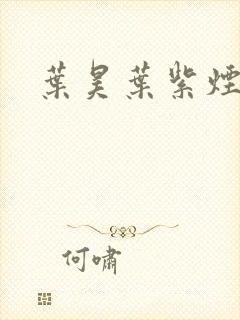 葉昊葉紫煙
何嘯